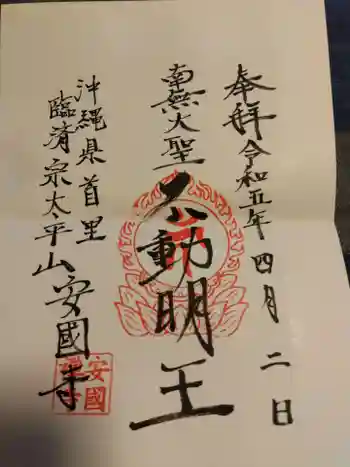 奉拝 令和五年四月二日
南無大聖
不動明王
沖縄県首里
臨済宗太平山安國寺
安國